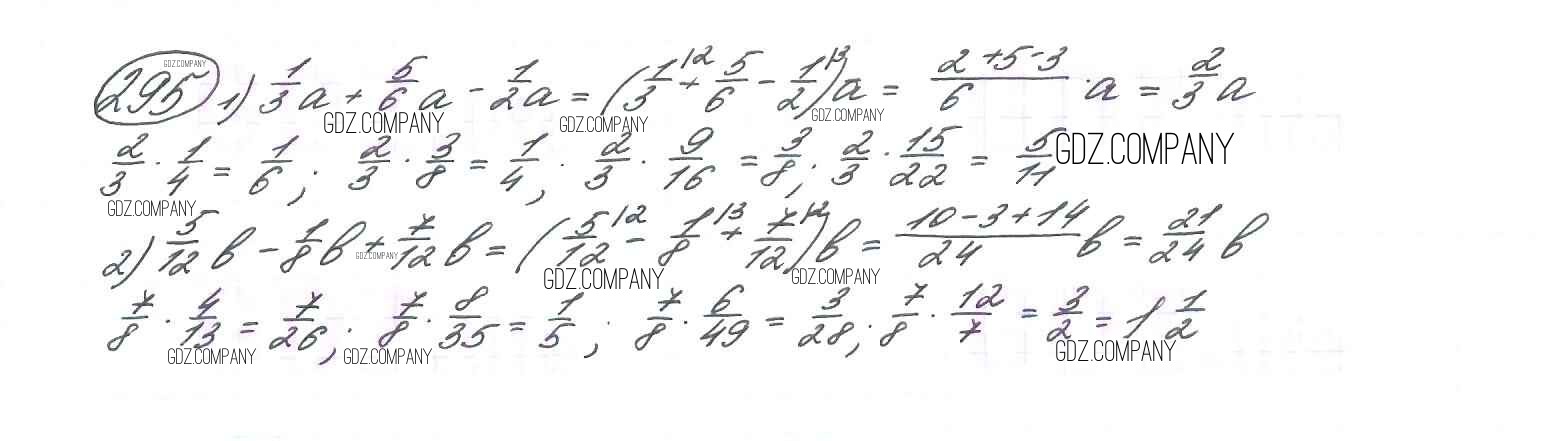 295 GDZ.COMPANY 1) 1/3 a + 5/6 a - 1/2 a = (1/3 |2 + 5/6 - 1/2 |3) a = 2+5-3/6 · a = 2/3 a
GDZ.COMPANY GDZ.COMPANY GDZ.COMPANY
2/3 · 1/4 = 1/6; 2/3 · 3/8 = 1/4; 2/3 · 9/16 = 3/8; 2/3 · 15/22 = 5/11 GDZ.COMPANY
GDZ.COMPANY
2) 5/12 b - 1/8 b + 7/12 b = (5/12 |2 - 1/8 |3 + 7/12 |2) b = 10-3+14/24 b = 21/24 b
GDZ.COMPANY GDZ.COMPANY GDZ.COMPANY
7/8 · 4/13 = 7/26; 7/8 · 8/35 = 1/5; 7/8 · 6/49 = 3/28; 7/8 · 12/7 = 3/2 = 1 1/2
GDZ.COMPANY GDZ.COMPANY GDZ.COMPANY